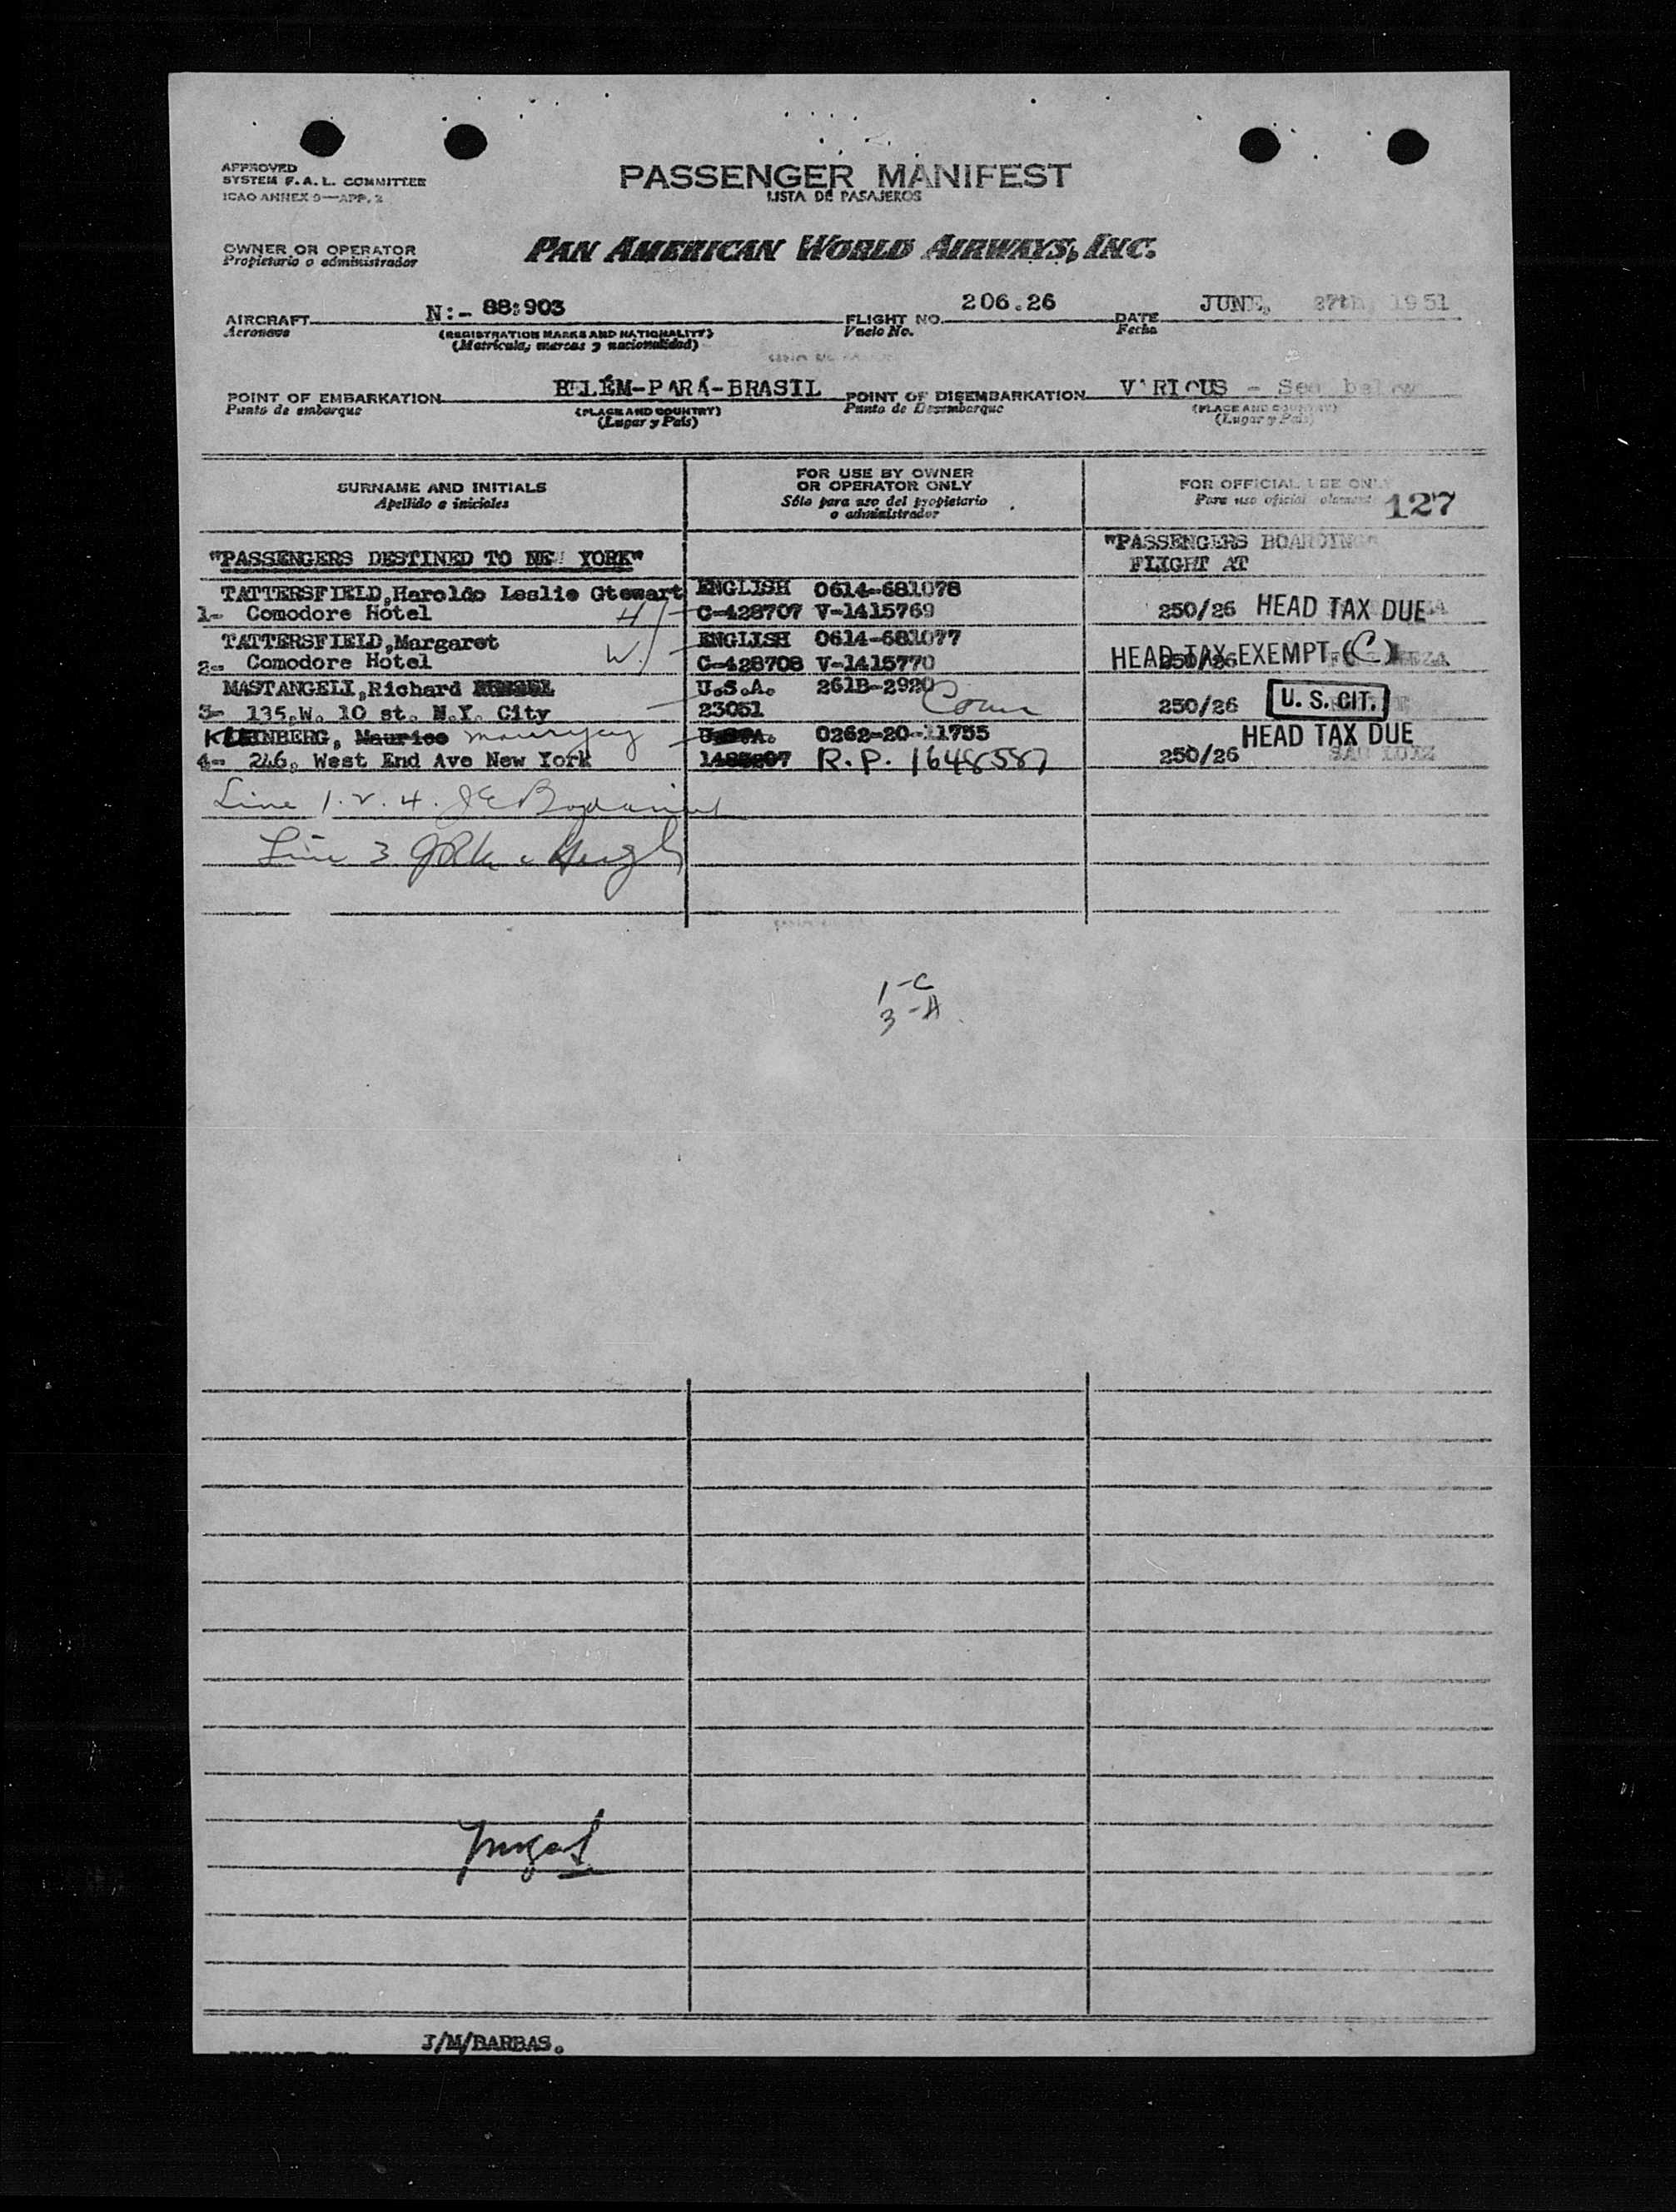 APPROVED
SYSTEM F.A.L. COMMITTEE
ICAO ANNEX 9—APP. 2
PASSENGER MANIFEST
LISTA DE PASAJEROS
OWNER OR OPERATOR
Propietario o administrador
PAN AMERICAN WORLD AIRWAYS, INC.
AIRCRAFT N:- 88:903 FLIGHT NO. 206.26 DATE JUNE, 27th 1951
Aeronave (REGISTRATION MARKS AND NATIONALITY) Vuelo No. Fecha
(Matrícula, marcas y nacionalidad)
POINT OF EMBARKATION BELÉM-PARÁ-BRASIL POINT OF DISEMBARKATION V RIOUS - See below
Punto de embarque (PLACE AND COUNTRY) Punto de Desembarque (PLACE AND COUNTRY)
(Lugar y País) (Lugar y País)
SURNAME AND INITIALS
Apellido e iniciales
FOR USE BY OWNER
OR OPERATOR ONLY
Sólo para uso del propietario
o administrador
FOR OFFICIAL USE ONLY
Para uso oficial
127
"PASSENGERS DESTINED TO NE YORK" "PASSENGERS BOARDING
FLIGHT AT
TATTERSFIELD,Haroldo Leslie Gtewart ENGLISH 0614-681078
1- Comodore Hotel H C-428707 V-1415769 250/26 HEAD TAX DUE
TATTERSFIELD,Margaret ENGLISH 0614-681077
2- Comodore Hotel W. C-428708 V-1415770 250/26 HEAD TAX EXEMPT (C)
MASTANGELI,Richard U.S.A. 261B-2920
3- 135,W. 10 st. N.Y. City 23051 250/26 U. S. CIT.
KLEINBERG, Maurice U.S.A. 0262-20-11755 HEAD TAX DUE
4- 246, West End Ave New York R.P. 1648587 250/26 SAO LUIZ
Line 1. 2. 4.
Line 3
1-C
3-A
J/M/BARBAS.